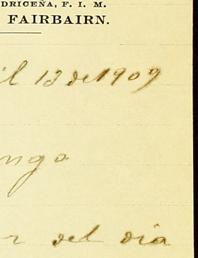 DRICEÑA, F. I. M.
FAIRBAIRN.
il 13 de 1909
ngo
r del dia